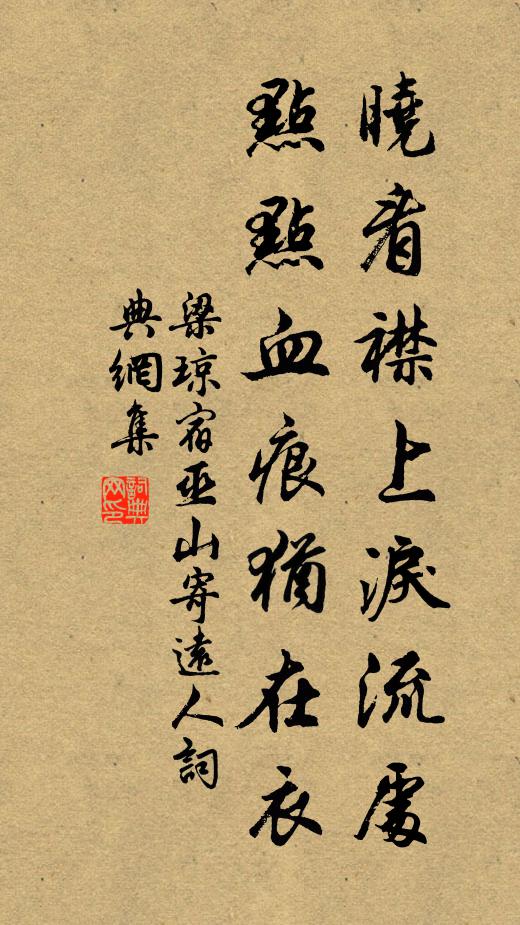 曉看襟上淚流處
點點血痕猶在衣
梁琼宿巫山寄遠人詞
典網集
詞典網印